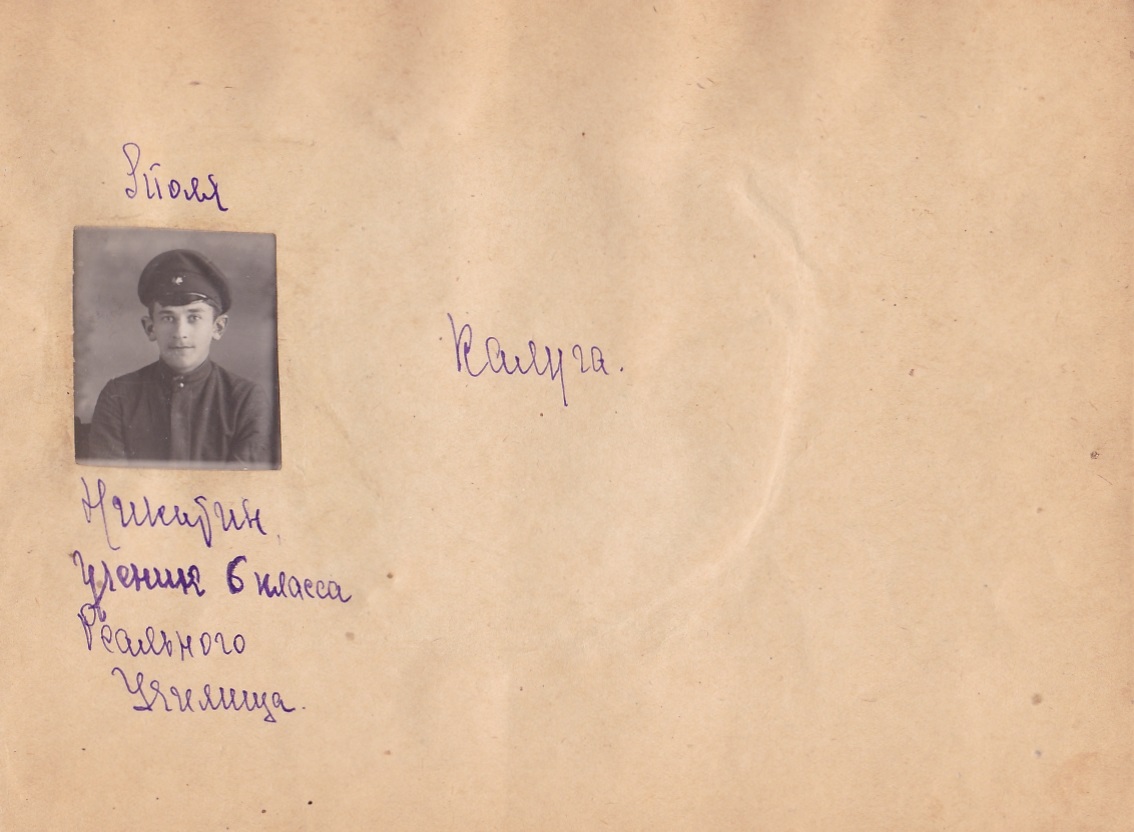 Толя
Калуга.
Никитин
Ученик 6 класса
Реального
Училища.